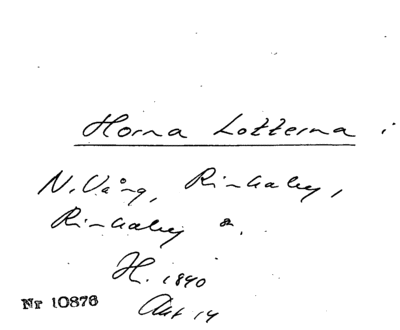 Horna Lotterna i
N. Vång, Rinkaby,
Rinkaby s.
H. 1840
Akt 14
Nr 10876